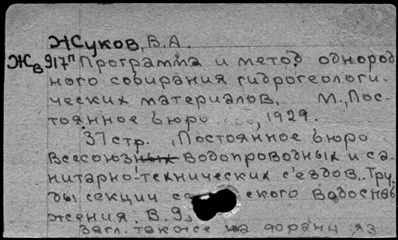 Жуков, В.А.
Жв917п Программа и метод однород
ного собирания гидрогеологи-
ческих материалов. М., Пос-
тоянное бюро, 1929.
37 стр. , Постоянное бюро
Всесоюзных Водопроводных и са-
нитарно-технических с'ездов. Тру-
ды секции ского Водоснаб
жения. В.9,
Загл. также на форанц яз